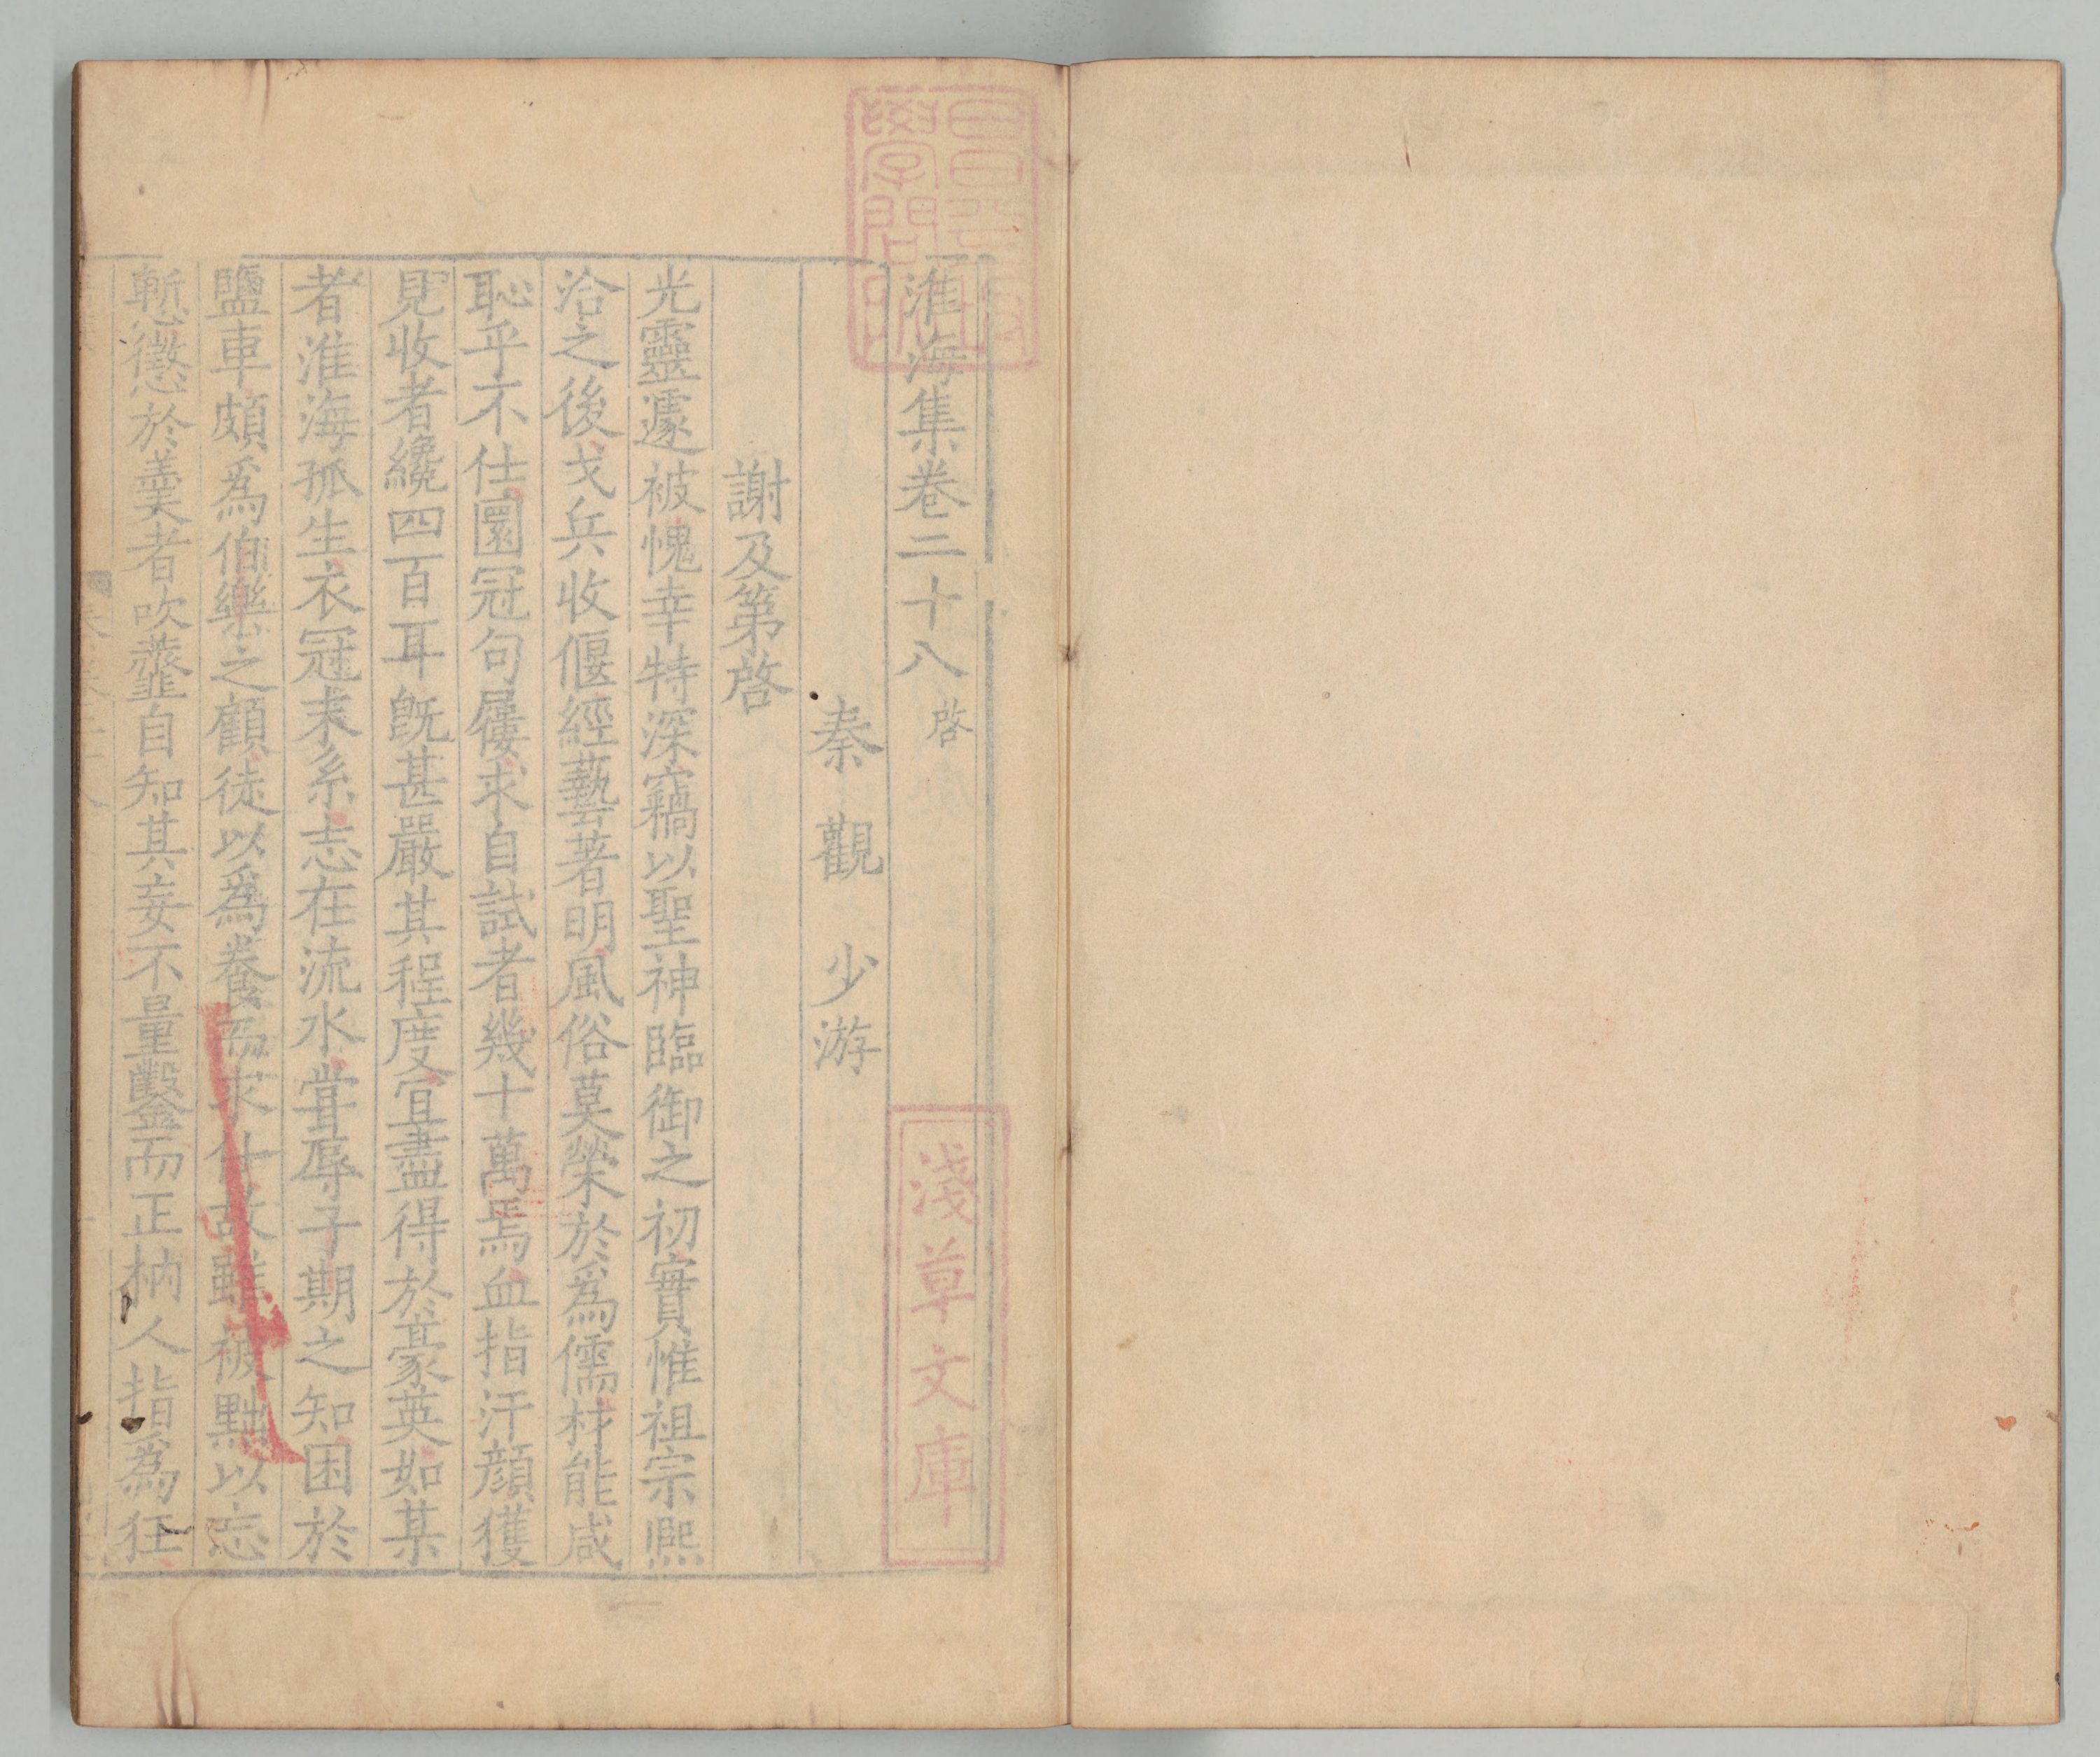 淮海集卷二十八 啓
秦觀 少游
謝及第啓
光靈遽被愧幸特深竊以聖神臨御之初實惟祖宗熈
洽之後戈兵收偃經藝著明風俗莫榮於為儒材能咸
恥乎不仕圜冠句屨求自試者幾十萬焉血指汗顔獲
見收者纔四百耳旣甚嚴其程度宜盡得於豪英如某
者淮海孤生衣冠末系志在流水甞辱子期之知困於
鹽車頗為伯樂之顧徒以為養而求仕故雖被黜以忘
慙懲於羹者吹虀自知其妄不量鑿而正枘人指為狂
淺草文庫